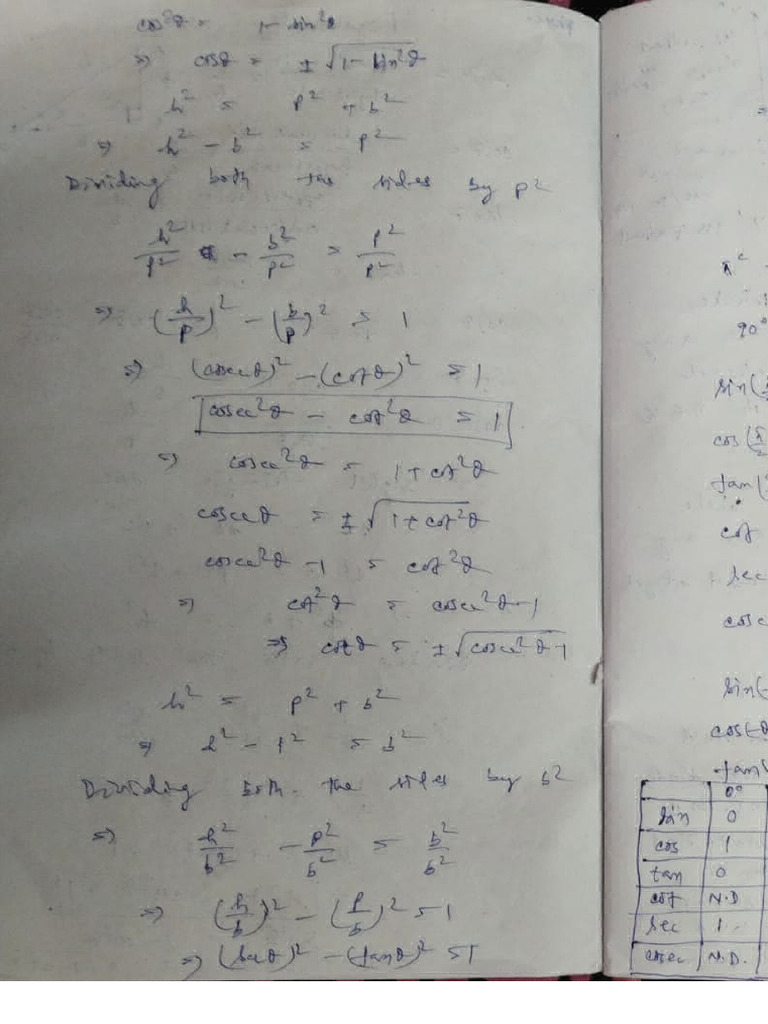 cos²θ = 1 - sin²θ
⇒ cosθ = ± √1 - sin²θ
h² = p² + b²
⇒ h² - b² = p²
Dividing both the sides by p²
h²/p² - b²/p² = p²/p²
⇒ (h/p)² - (b/p)² = 1
⇒ (cosecθ)² - (cotθ)² = 1
cosec²θ - cot²θ = 1
⇒ cosec²θ = 1 + cot²θ
cosecθ = ± √1 + cot²θ
cosec²θ - 1 = cot²θ
⇒ cot²θ = cosec²θ - 1
⇒ cotθ = ± √cosec²θ - 1
h² = p² + b²
⇒ h² - p² = b²
Dividing both the sides by b²
⇒ h²/b² - p²/b² = b²/b²
⇒ (h/b)² - (p/b)² = 1
⇒ (secθ)² - (tanθ)² = 1
90°
sin(
cos(π/2
tan(
cot
sec
cosec
sin(-
cos(-θ
tan(
0°
sin 0
cos 1
tan 0
cot N.D
sec 1
cosec N.D.